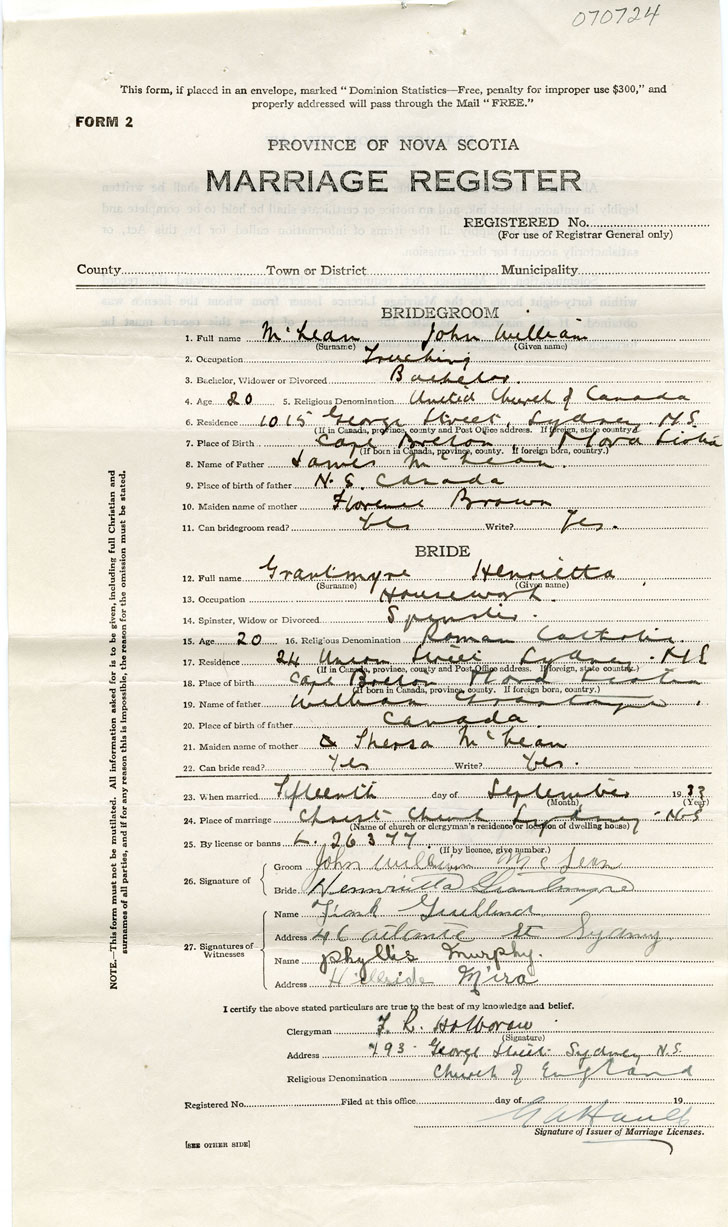 070724
This form, if placed in an envelope, marked "Dominion Statistics—Free, penalty for improper use $300," and
properly addressed will pass through the Mail "FREE."
FORM 2
PROVINCE OF NOVA SCOTIA
MARRIAGE REGISTER
REGISTERED No.
(For use of Registrar General only)
County Town or District Municipality
BRIDEGROOM
1. Full name McLean John William
(Surname) (Given name)
2. Occupation Trucking
3. Bachelor, Widower or Divorced Bachelor.
4. Age 20 5. Religious Denomination United Church of Canada
6. Residence 1015 George Street Sydney N.S.
(If in Canada, province, county and Post Office address. If foreign, state country)
7. Place of Birth Cape Breton Nova Scotia
(If born in Canada, province, county. If foreign born, country.)
8. Name of Father James McLean.
9. Place of birth of father N.S. Canada
10. Maiden name of mother Florence Brown
11. Can bridegroom read? Yes Write? Yes.
BRIDE
12. Full name Grantmyre Henrietta
(Surname) (Given name)
13. Occupation Housework.
14. Spinster, Widow or Divorced Spinster.
15. Age 20 16. Religious Denomination Roman Catholic
17. Residence 24 Union Street Sydney N.S
(If in Canada, province, county and Post Office address. If foreign, state country.)
18. Place of birth Cape Breton Nova Scotia
(If born in Canada, province, county. If foreign born, country.)
19. Name of father William Grantmyre
20. Place of birth of father Canada.
21. Maiden name of mother Theresa McLean
22. Can bride read? Yes Write? Yes.
23. When married Fifteenth day of September 1933
(Month) (Year)
24. Place of marriage Christ Church Sydney N.S
(Name of church or clergyman's residence or location of dwelling house)
25. By license or banns L. 26377.
(If by licence, give number.)
26. Signature of
Groom John William McLean
Bride Henrietta Grantmyre
27. Signatures of Witnesses
Name Frank
Address 46 Atlantic St Sydney
Name Phyllis Murphy.
Address Hillside Mira
I certify the above stated particulars are true to the best of my knowledge and belief.
Clergyman
(Signature)
Address 493 George Street Sydney N.S.
Religious Denomination Church of England
Registered No. Filed at this office day of 19
Signature of Issuer of Marriage Licenses.
[SEE OTHER SIDE]
NOTE.—This form must not be mutilated. All information asked for is to be given, including full Christian and
surnames of all parties, and if for any reason this is impossible, the reason for the omission must be stated.